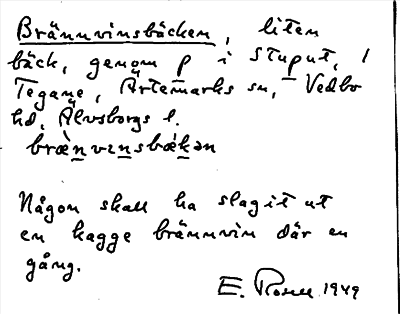 Brännvinsbäcken, liten
bäck, genom p i Stuput, 1
Tegane, Ärtemarks sn, Vedbo
hd, Älvsborgs l.
bræ̀nvɪnsbǽkən
Någon skall ha slagit ut
en kagge brännvin där en
gång.
E. Rosell 1949